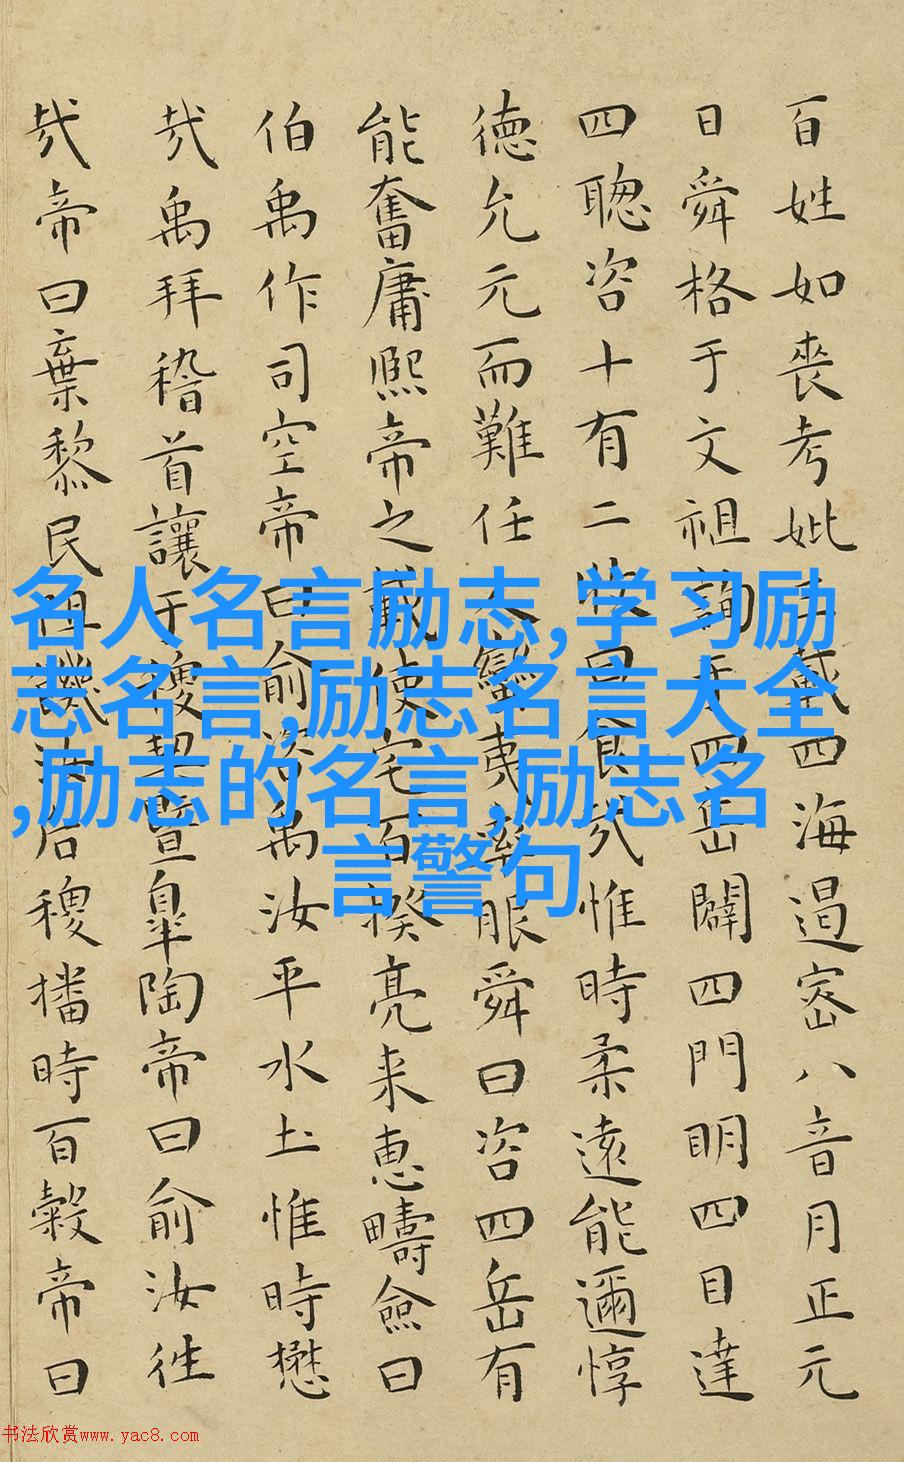 百姓如喪考妣三載四海遏密八音月正元
日舜格于文祖詢于四岳闢四門明四目達
四聰咨十有二牧曰食哉惟時柔遠能邇惇
德允元而難任人蠻夷率服舜曰咨四岳有
能奮庸熙帝之載使宅百揆亮采惠疇僉曰
伯禹作司空帝曰俞咨禹汝平水土惟時懋
哉禹拜稽首讓于稷契暨皐陶帝曰俞汝往
哉帝曰棄黎民阻飢汝后稷播時百穀帝曰
名人名言励志,学习励
志名言,励志名言大全
,励志的名言,励志名
言警句
书法欣赏www.yac8.com